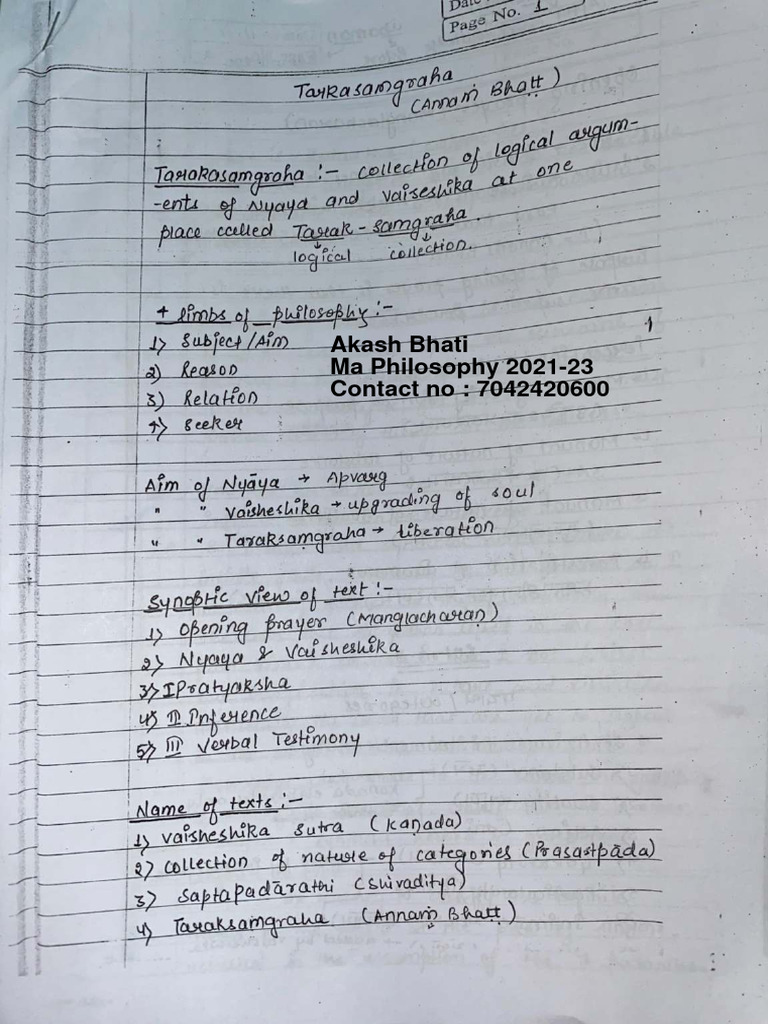 Date
Page No. 1
Tarkasamgraha
(Annaṁ Bhaṭṭ)
Tarakasamgroha :- collection of logical argum-
-ents of Nyaya and Vaiseshika at one
place called Tarak - samgraha.
logical collection.
4 limbs of philosophy :-
1) Subject/Aim
2) Reason
3) Relation
4) Seeker
1
Akash Bhati
Ma Philosophy 2021-23
Contact no : 7042420600
Aim of Nyāya → Apvarg
" " Vaisheshika → upgrading of soul
" " Taraksaṃgraha → liberation
Synoptic view of text :-
1) Opening Prayer (Manglacharaṇ)
2) Nyaya & Vaisheshika
3) I Pratyaksha
4) II Inference
5) III Verbal Testimony
Name of texts :-
1) Vaisheshika Sutra (Kaṇada)
2) Collection of nature of categories (Prasastpāda)
3) Saptapadārathi (Shivaditya)
4) Taraksaṃgraha (Annaṁ Bhaṭṭ)